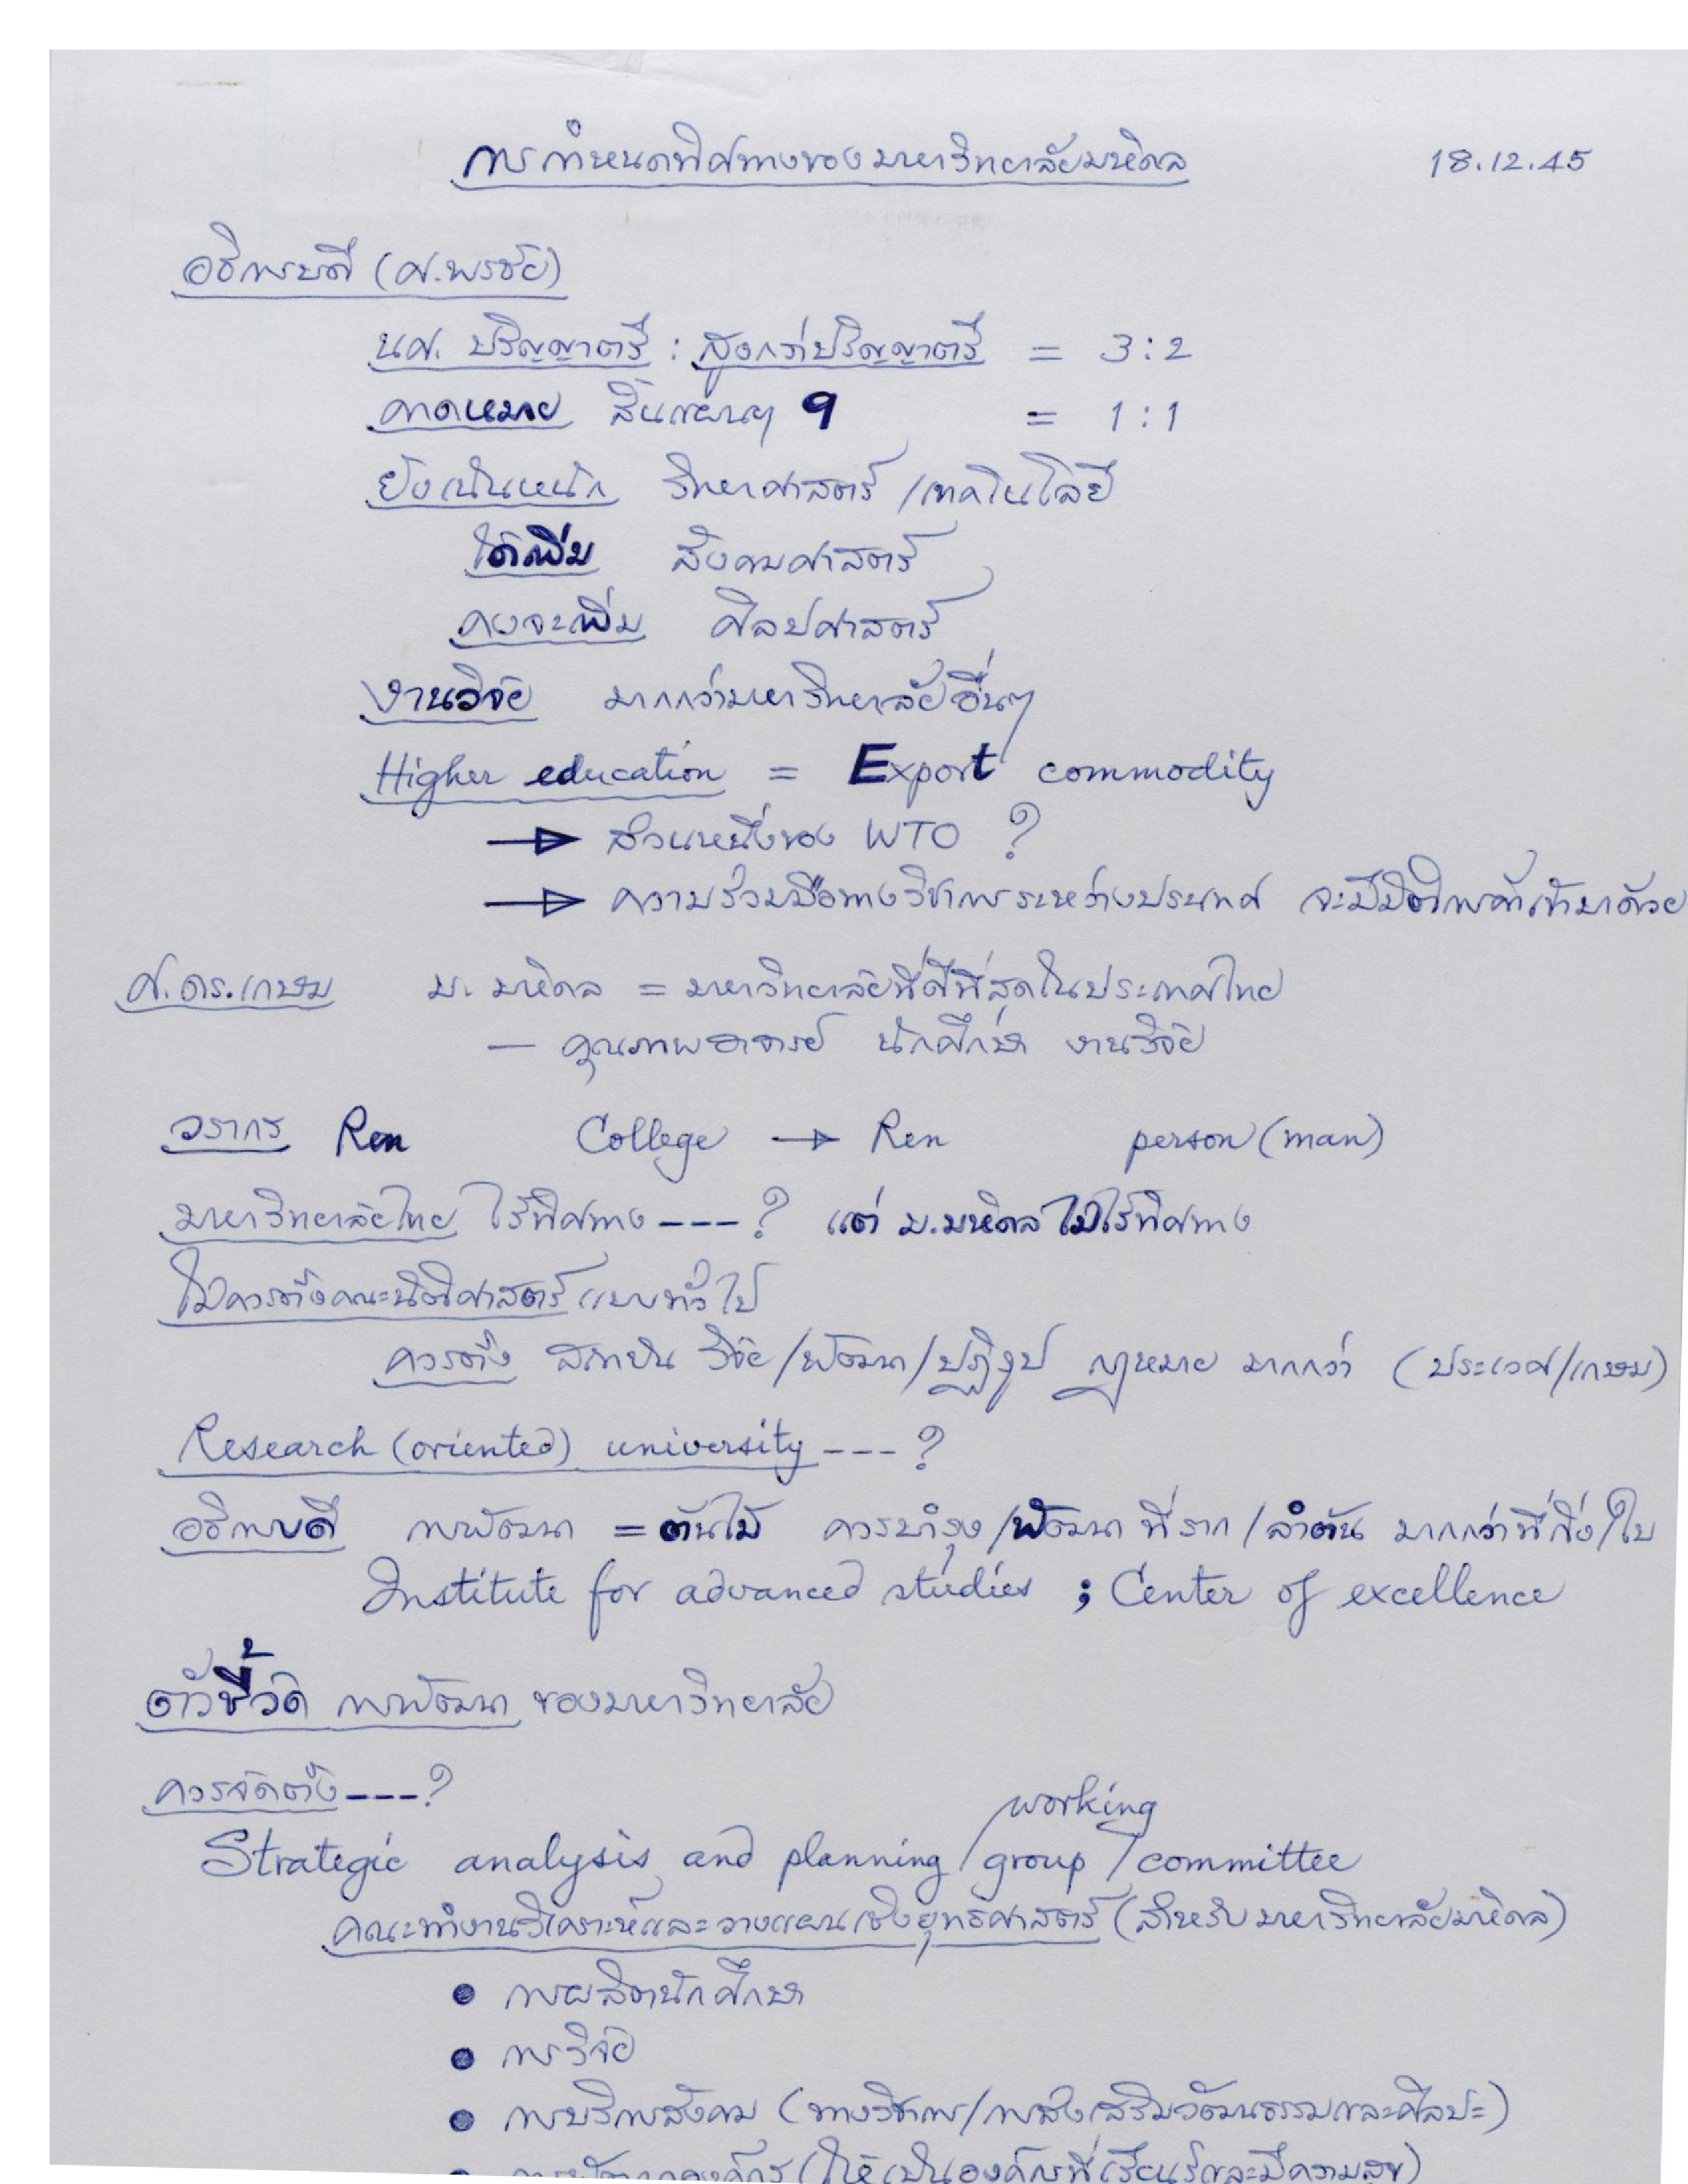 การกำหนดทิศทางของมหาวิทยาลัยมหิดล 18.12.45
อธิการบดี (ศ.พรชัย)
นศ. ปริญญาตรี : สูงกว่าปริญญาตรี = 3:2
คาดหมาย สิ้นแผนฯ 9 = 1:1
ยังเน้นหนัก วิทยาศาสตร์/เทคโนโลยี
ได้เพิ่ม สังคมศาสตร์
คงจะเพิ่ม ศิลปศาสตร์
งานวิจัย มากกว่ามหาวิทยาลัยอื่นๆ
Higher education = Export commodity
→ ส่วนหนึ่งของ WTO ?
→ ความร่วมมือทางวิชาการระหว่างประเทศ จะมีมิติการค้าเข้ามาด้วย
ศ.ดร.เกษม ม. มหิดล = มหาวิทยาลัยที่ดีที่สุดในประเทศไทย
— คุณภาพอาจารย์ นักศึกษา งานวิจัย
วรากร Ren College → Ren person (man)
มหาวิทยาลัยไทย ไร้ทิศทาง ---? แต่ ม.มหิดล ไม่ไร้ทิศทาง
ไม่ควรตั้งคณะนิติศาสตร์แบบทั่วไป
ควรตั้ง สถาบัน วิจัย/พัฒนา/ปฏิรูป กฎหมาย มากกว่า (ประเวศ/เกษม)
Research (oriented) university ---?
อธิการบดี การพัฒนา = ต้นไม้ ควรบำรุง/พัฒนา ที่ราก/ลำต้น มากกว่าที่กิ่ง/ใบ
Institute for advanced studies ; Center of excellence
ตัวชี้วัด การพัฒนา ของมหาวิทยาลัย
ควรจัดตั้ง ---?
working
Strategic analysis and planning/group/committee
คณะทำงานวิเคราะห์และวางแผนเชิงยุทธศาสตร์ (สำหรับมหาวิทยาลัยมหิดล)
• การผลิตนักศึกษา
• การวิจัย
• การบริการสังคม (ทางวิชาการ/การส่งเสริมวัฒนธรรมและศิลปะ)
• การพัฒนาองค์กร (ให้เป็นองค์กรที่เรียนรู้และมีความสุข)